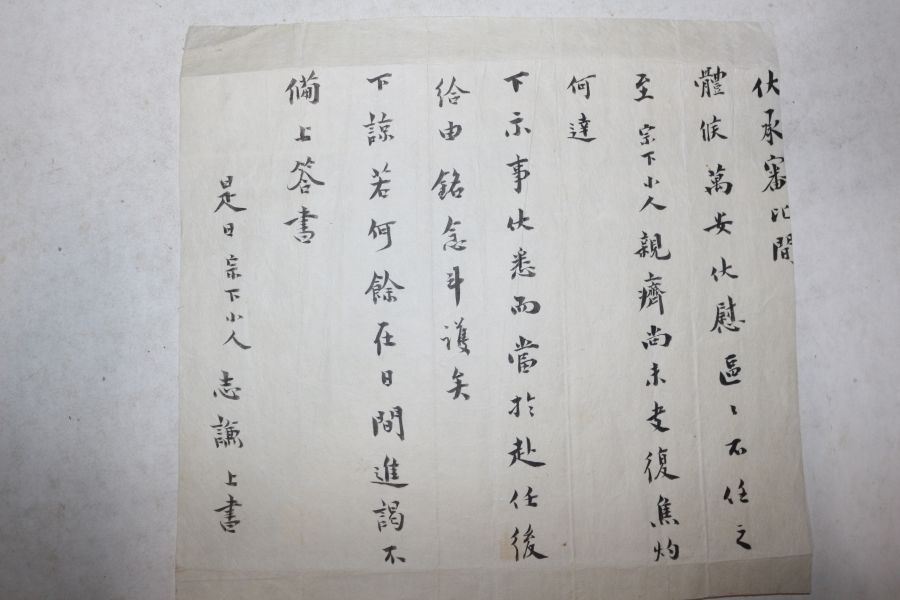 伏承審比間
體候萬安伏慰區〻不任之
至宗下小人親癠尚未支復焦灼
何達
下示事伏悉而當於赴任後
給由銘念斗護矣
下諒若何餘在日間進謁不
備上答書
是日宗下小人志謙上書